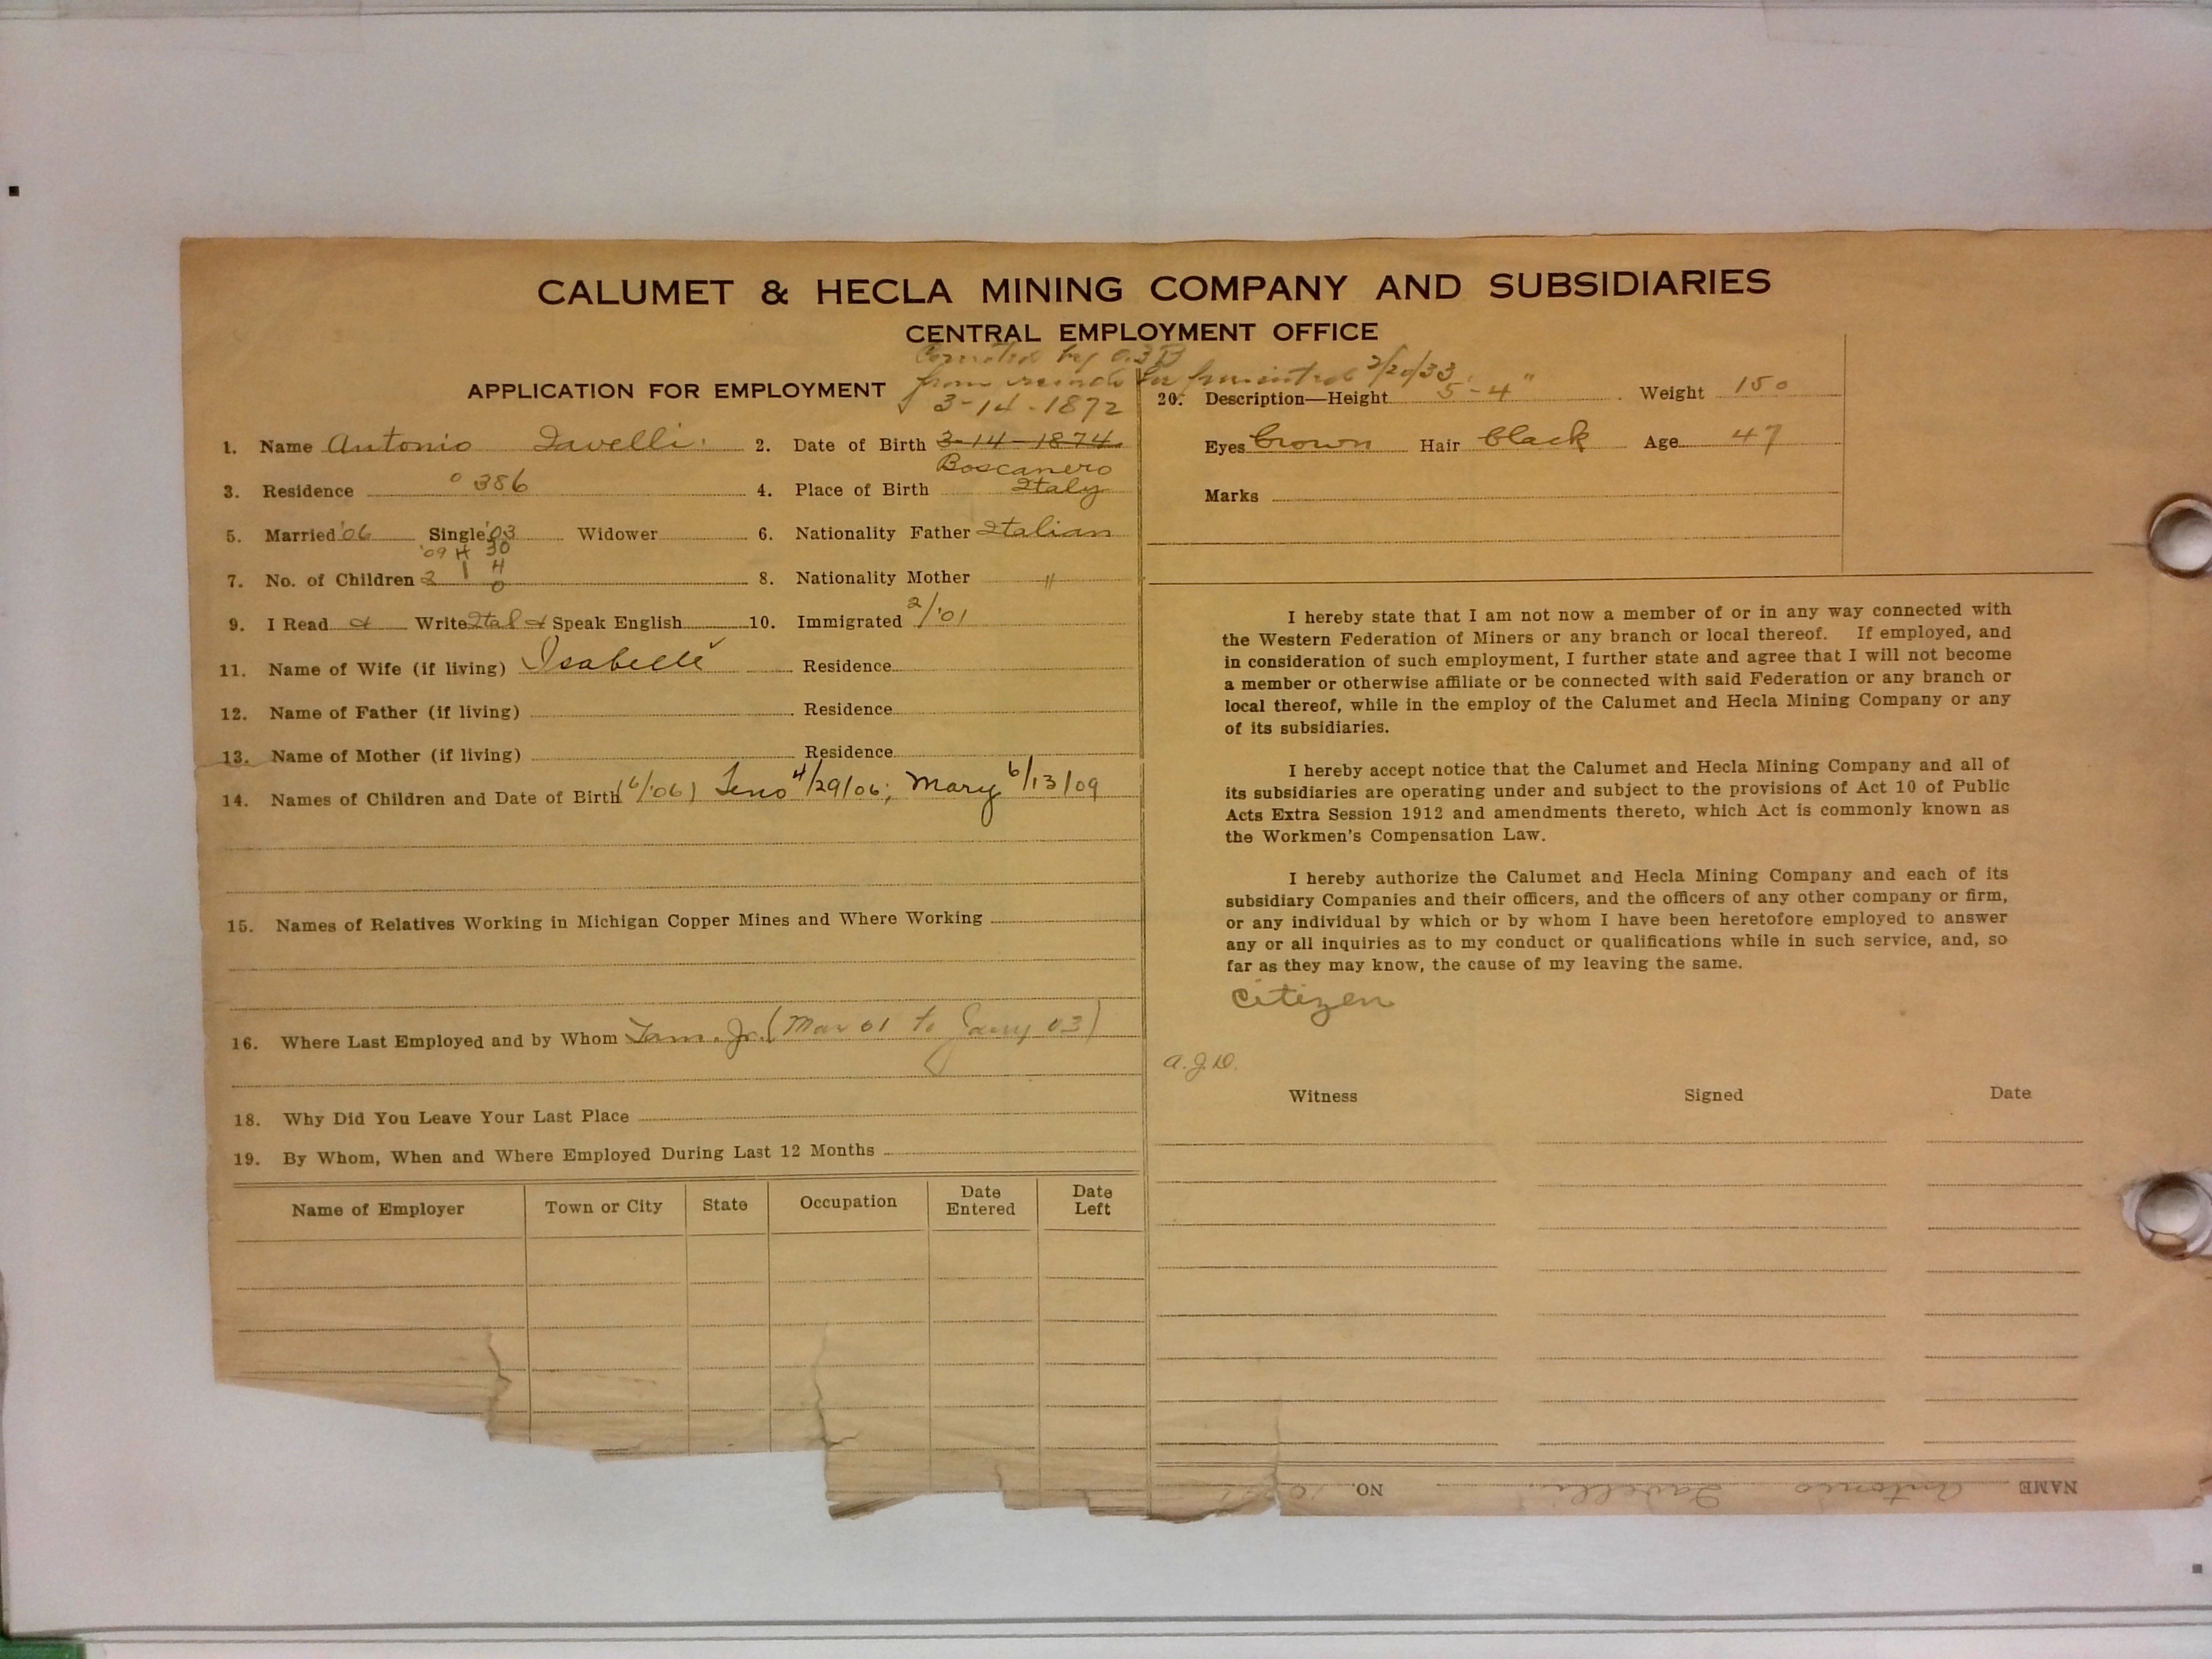 CALUMET & HECLA MINING COMPANY AND SUBSIDIARIES
CENTRAL EMPLOYMENT OFFICE
Corrected by
from records 2/20/33
APPLICATION FOR EMPLOYMENT 3-14-1872
1. Name Antonio 2. Date of Birth 3-14-1874
3. Residence 386 4. Place of Birth Boscanero Italy
5. Married '06 Single '03 Widower 6. Nationality Father Italian
'09 H 30
7. No. of Children 2 1 H 0 8. Nationality Mother "
9. I Read & Write Ital & Speak English 10. Immigrated 2/'01
11. Name of Wife (if living) Isabelle Residence
12. Name of Father (if living) Residence
13. Name of Mother (if living) Residence
14. Names of Children and Date of Birth (6/'06) 4/29/06; Mary 6/13/09
15. Names of Relatives Working in Michigan Copper Mines and Where Working
16. Where Last Employed and by Whom Tam. Jr. (Mar 01 to 03)
18. Why Did You Leave Your Last Place
19. By Whom, When and Where Employed During Last 12 Months
Name of Employer Town or City State Occupation Date Entered Date Left
20. Description—Height 5-4" Weight 150
Eyes brown Hair black Age 47
Marks
I hereby state that I am not now a member of or in any way connected with
the Western Federation of Miners or any branch or local thereof. If employed, and
in consideration of such employment, I further state and agree that I will not become
a member or otherwise affiliate or be connected with said Federation or any branch or
local thereof, while in the employ of the Calumet and Hecla Mining Company or any
of its subsidiaries.
I hereby accept notice that the Calumet and Hecla Mining Company and all of
its subsidiaries are operating under and subject to the provisions of Act 10 of Public
Acts Extra Session 1912 and amendments thereto, which Act is commonly known as
the Workmen's Compensation Law.
I hereby authorize the Calumet and Hecla Mining Company and each of its
subsidiary Companies and their officers, and the officers of any other company or firm,
or any individual by which or by whom I have been heretofore employed to answer
any or all inquiries as to my conduct or qualifications while in such service, and, so
far as they may know, the cause of my leaving the same.
Citizen
A.J.D.
Witness Signed Date
NAME Antonio NO.